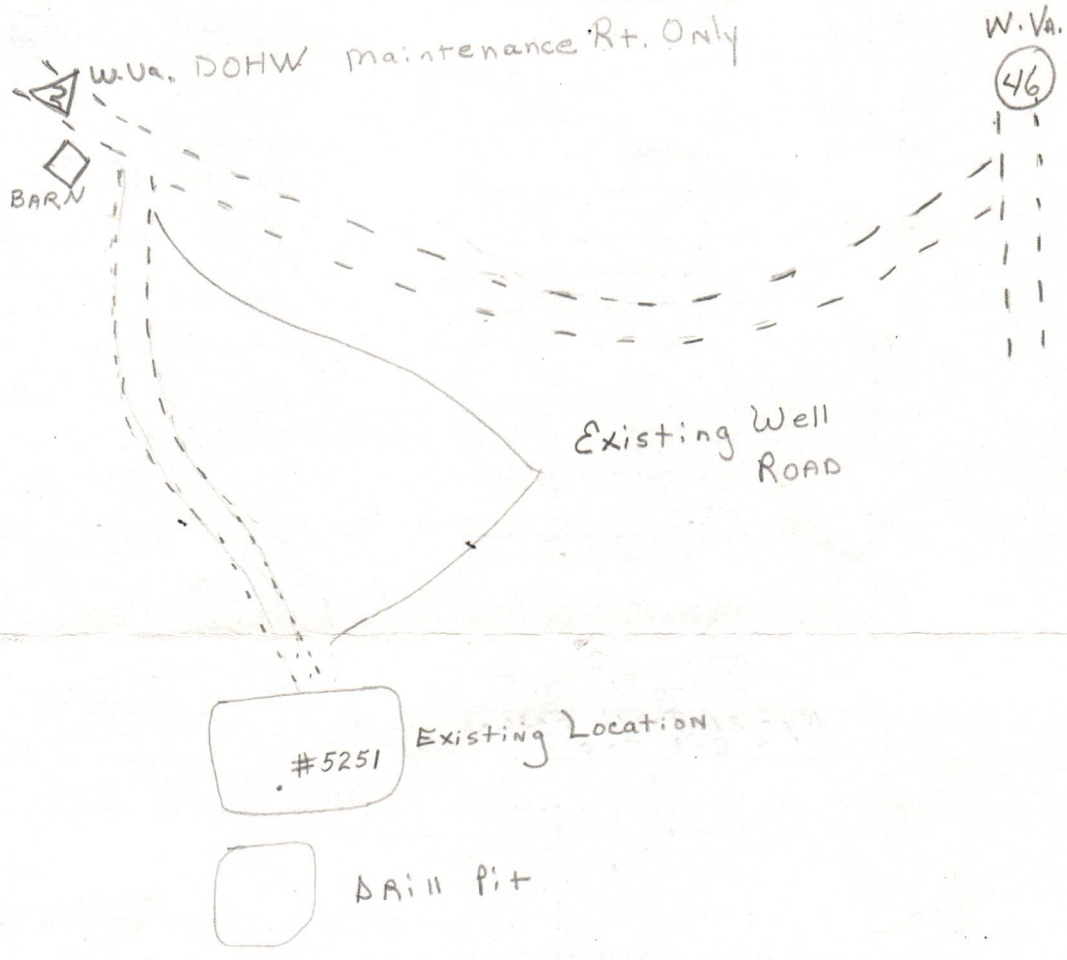 W.VA.
46
2
W.Va. DOHW Maintenance Rt. Only
BARN
Existing Well
ROAD
#5251
Existing Location
Drill Pit